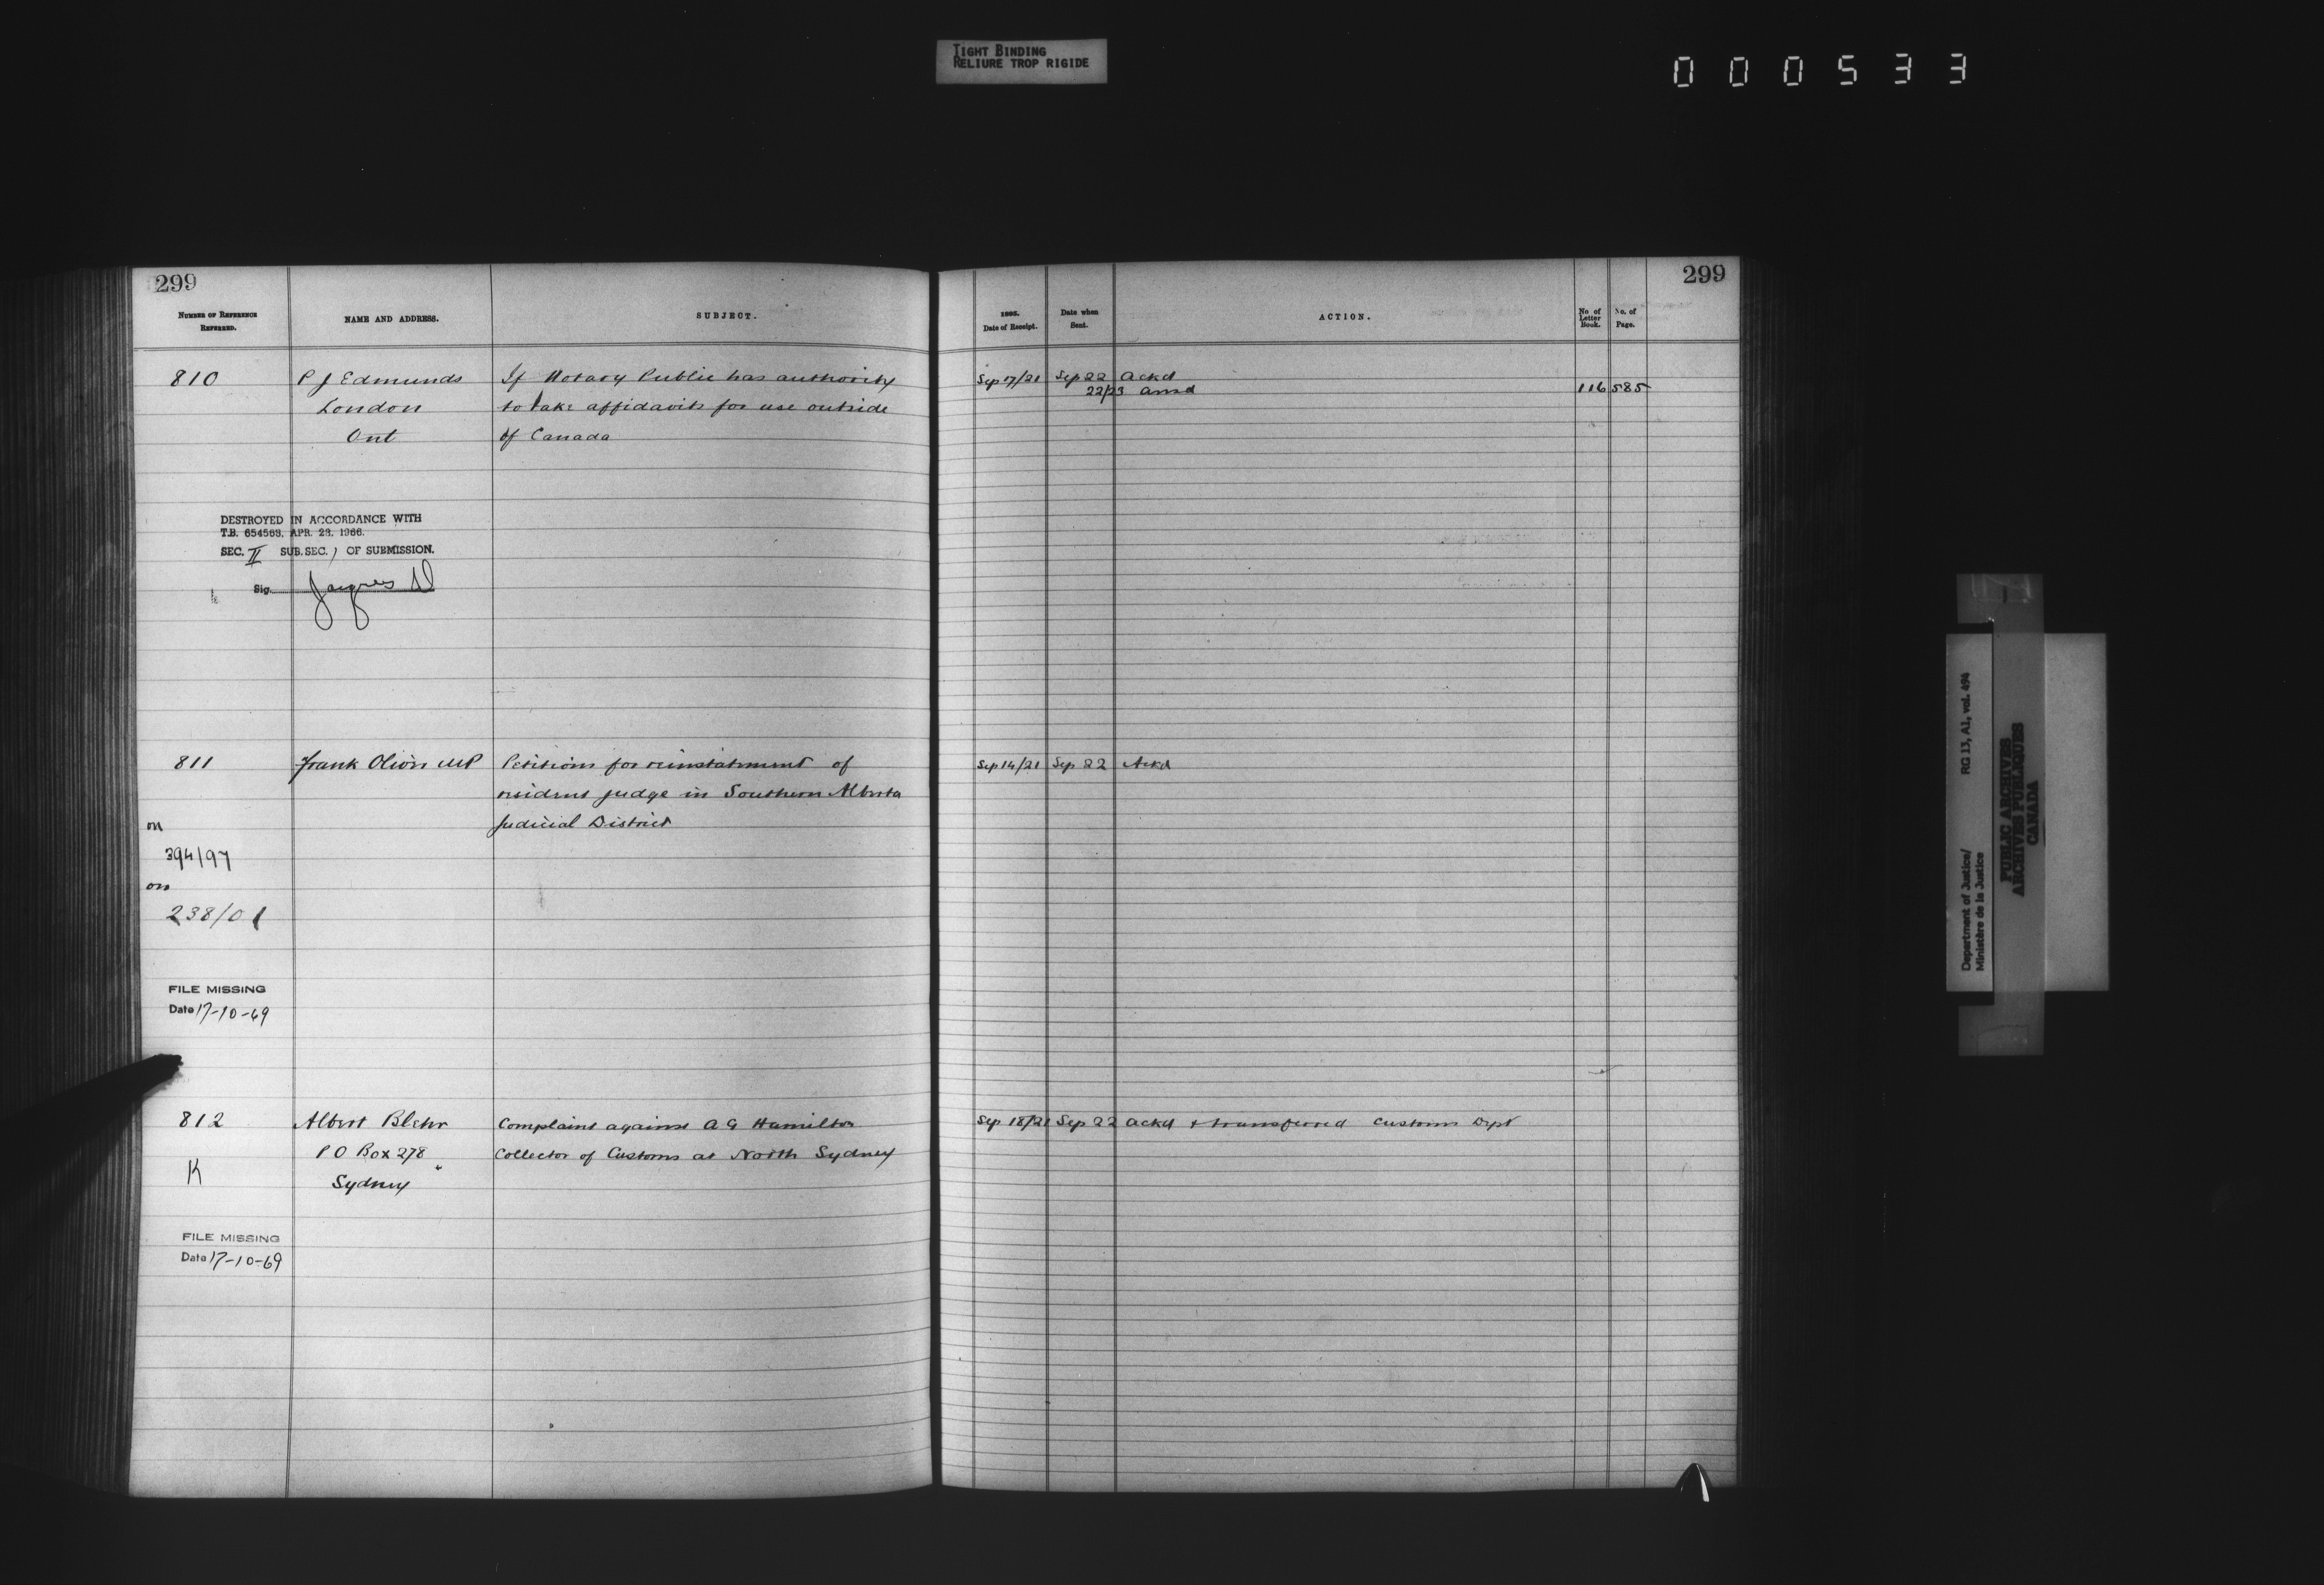 TIGHT BINDING
RELIURE TROP RIGIDE
000533
299
NUMBER OF REFERENCE
REFERRED.
NAME AND ADDRESS.
SUBJECT.
810
P J Edmunds
If Notary Public has authority
London
to take affidavits for use outside
Ont
of Canada
DESTROYED IN ACCORDANCE WITH
T.B. 654563, APR. 28, 1966.
SEC. II SUB. SEC. 1 OF SUBMISSION.
Sig.
811
Frank Oliver MP
Petitions for reinstatement of
resident judge in Southern Alberta
Judicial District
on
394/97
on
238/01
FILE MISSING
Date 17-10-69
812
Albert Blehr
Complaint against A G Hamilton
P O Box 278
Collector of Customs at North Sydney
K
Sydney
FILE MISSING
Date 17-10-69
299
Date of Receipt.
Date when
Sent.
ACTION.
No of
Letter
Book.
No. of
Page.
Sep 17/21 Sep 22 Ackd
22/23 Ansd 116 585
Sep 14/21 Sep 22 Ackd
Sep 18/21 Sep 22 Ackd & transferred Customs Dept
Department of Justice/ RG 13, A1, vol. 494
Ministère de la Justice
PUBLIC ARCHIVES
ARCHIVES PUBLIQUES
CANADA